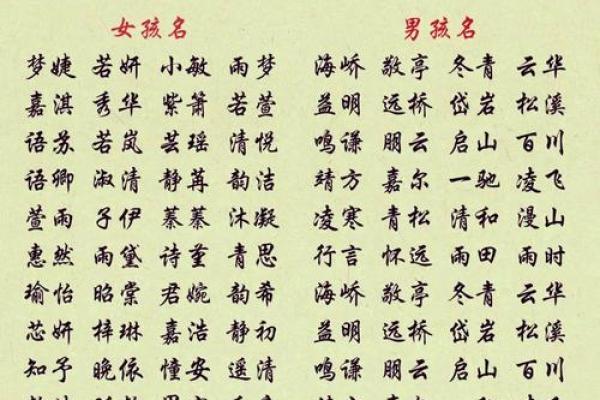 女孩名 男孩名
梦婕 若妍 小敏 雨梦 海峤 敬亭 冬青 云华
嘉淇 秀华 紫箫 若萱 益明 远桥 岱岩 松溪
语苏 若岚 芸瑶 清悦 鸣谦 朋云 启山 百川
语卿 淑清 静苒 韵洁 靖方 嘉尔 一驰 凌飞
萱雨 子伊 蓁蓁 沐凝 凌寒 青松 清和 漫山
惠然 雨黛 诗堇 青思 行言 怀远 雨田 雨时
瑜怡 昭棠 君婉 韵希 海峤 敬亭 冬青 云华
芯妍 梓琳 嘉浩 静初 益明 远桥 岱岩 松溪
知予 晚依 憧安 遥清 鸣谦 朋云 启山 百川